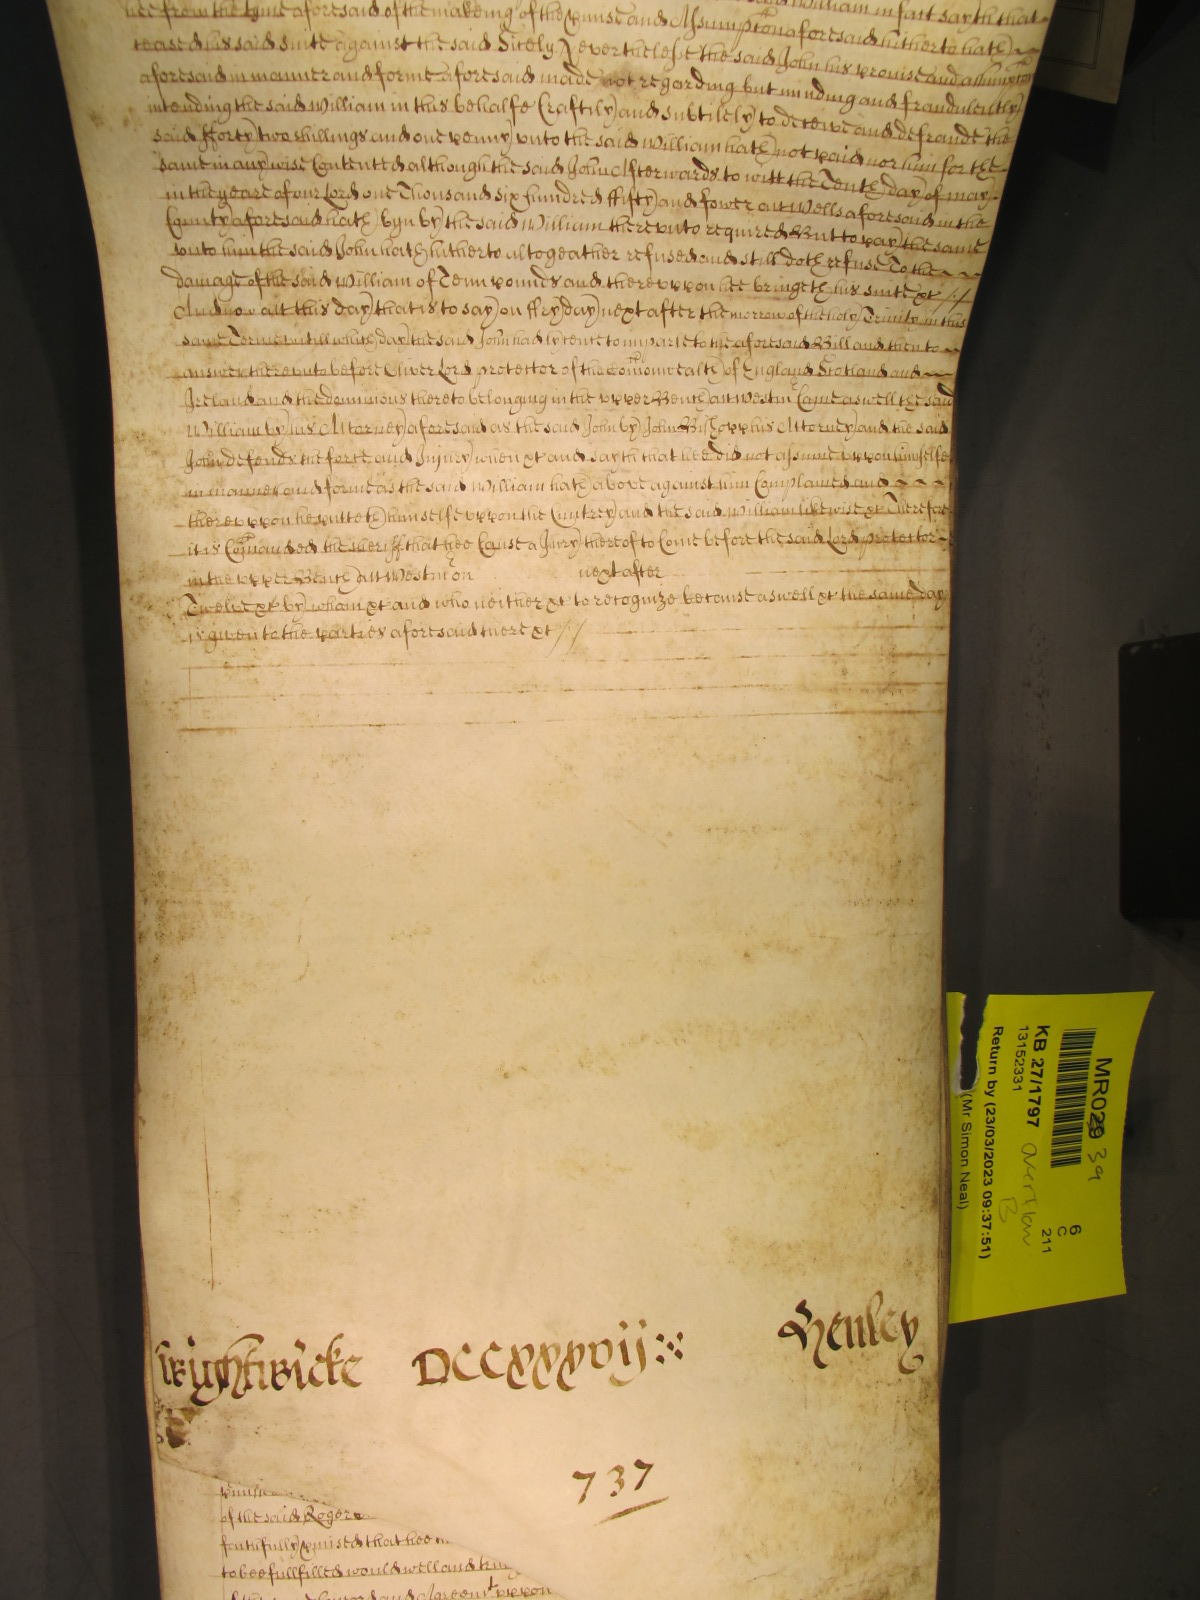 hee from the tyme aforesaid of the makeing of the pmise and Assumpton aforesaid hitherto hath
ceased his said suite against the said Sitely. Neverthelesse the said John his promise and assumpton
aforesaid in manner and forme aforesaid made not regarding but minding and fraudulently
intending the said William in this behalfe Craftily and subtilely to deceive and defraude the
said fforty two shillings and one penny unto the said William hath not paid nor him for the
same in any wise Contented although the said John Afterwards to witt the Tenth day of may
in the yeare of our Lord one Thousand six hundred ffifty and fower att Wells aforesaid in the
County aforesaid hath byn by the said William thereunto required But to pay the same
unto him the said John hath hitherto altogeather refused and still doth refuse To the
damage of the said William of Tenn pounds and thereuppon hee bringeth his suite xt //
And now att this day that is to say on ffryday next after the morrow of the holy Trinity in this
same Terme untill which day the said John had lycence to imparle to the aforesaid Bill and then to
answer thereunto before Oliver Lord protector of the Comonwealth of England Scotland and
Ireland and the dominions thereto belonging in the upper Bench att Westm Came aswell the said
William by his Attorney aforesaid as the said John by John Bishopp his Attorney and the said
John defends the force and Injury when xt and sayth that hee did not assume uppon himselfe
in manner and forme as the said William hath above against him Complained and
thereuppon he putteth himselfe uppon the Cuntrey and the said William likewise xt Therefore
it is Comanded the sheriff that hee Cause a Jury thereof to Come before the said Lord protector
in the upper Bench att Westm on next after
Twelve xt by whom xt and who neither xt to recognize because aswell xt the same day
is given to the parties aforesaid there xt //
Wightwicke DCCxxxvij Henley
737
of the said Roger
faithfully pmised that hee
to bee fullfilled would well and
and Agreemt uppon
MR029 39
KB 27/1797
13152331
overflow
B
6
C
211
Return by (23/03/2023 09:37:51)
(Mr Simon Neal)